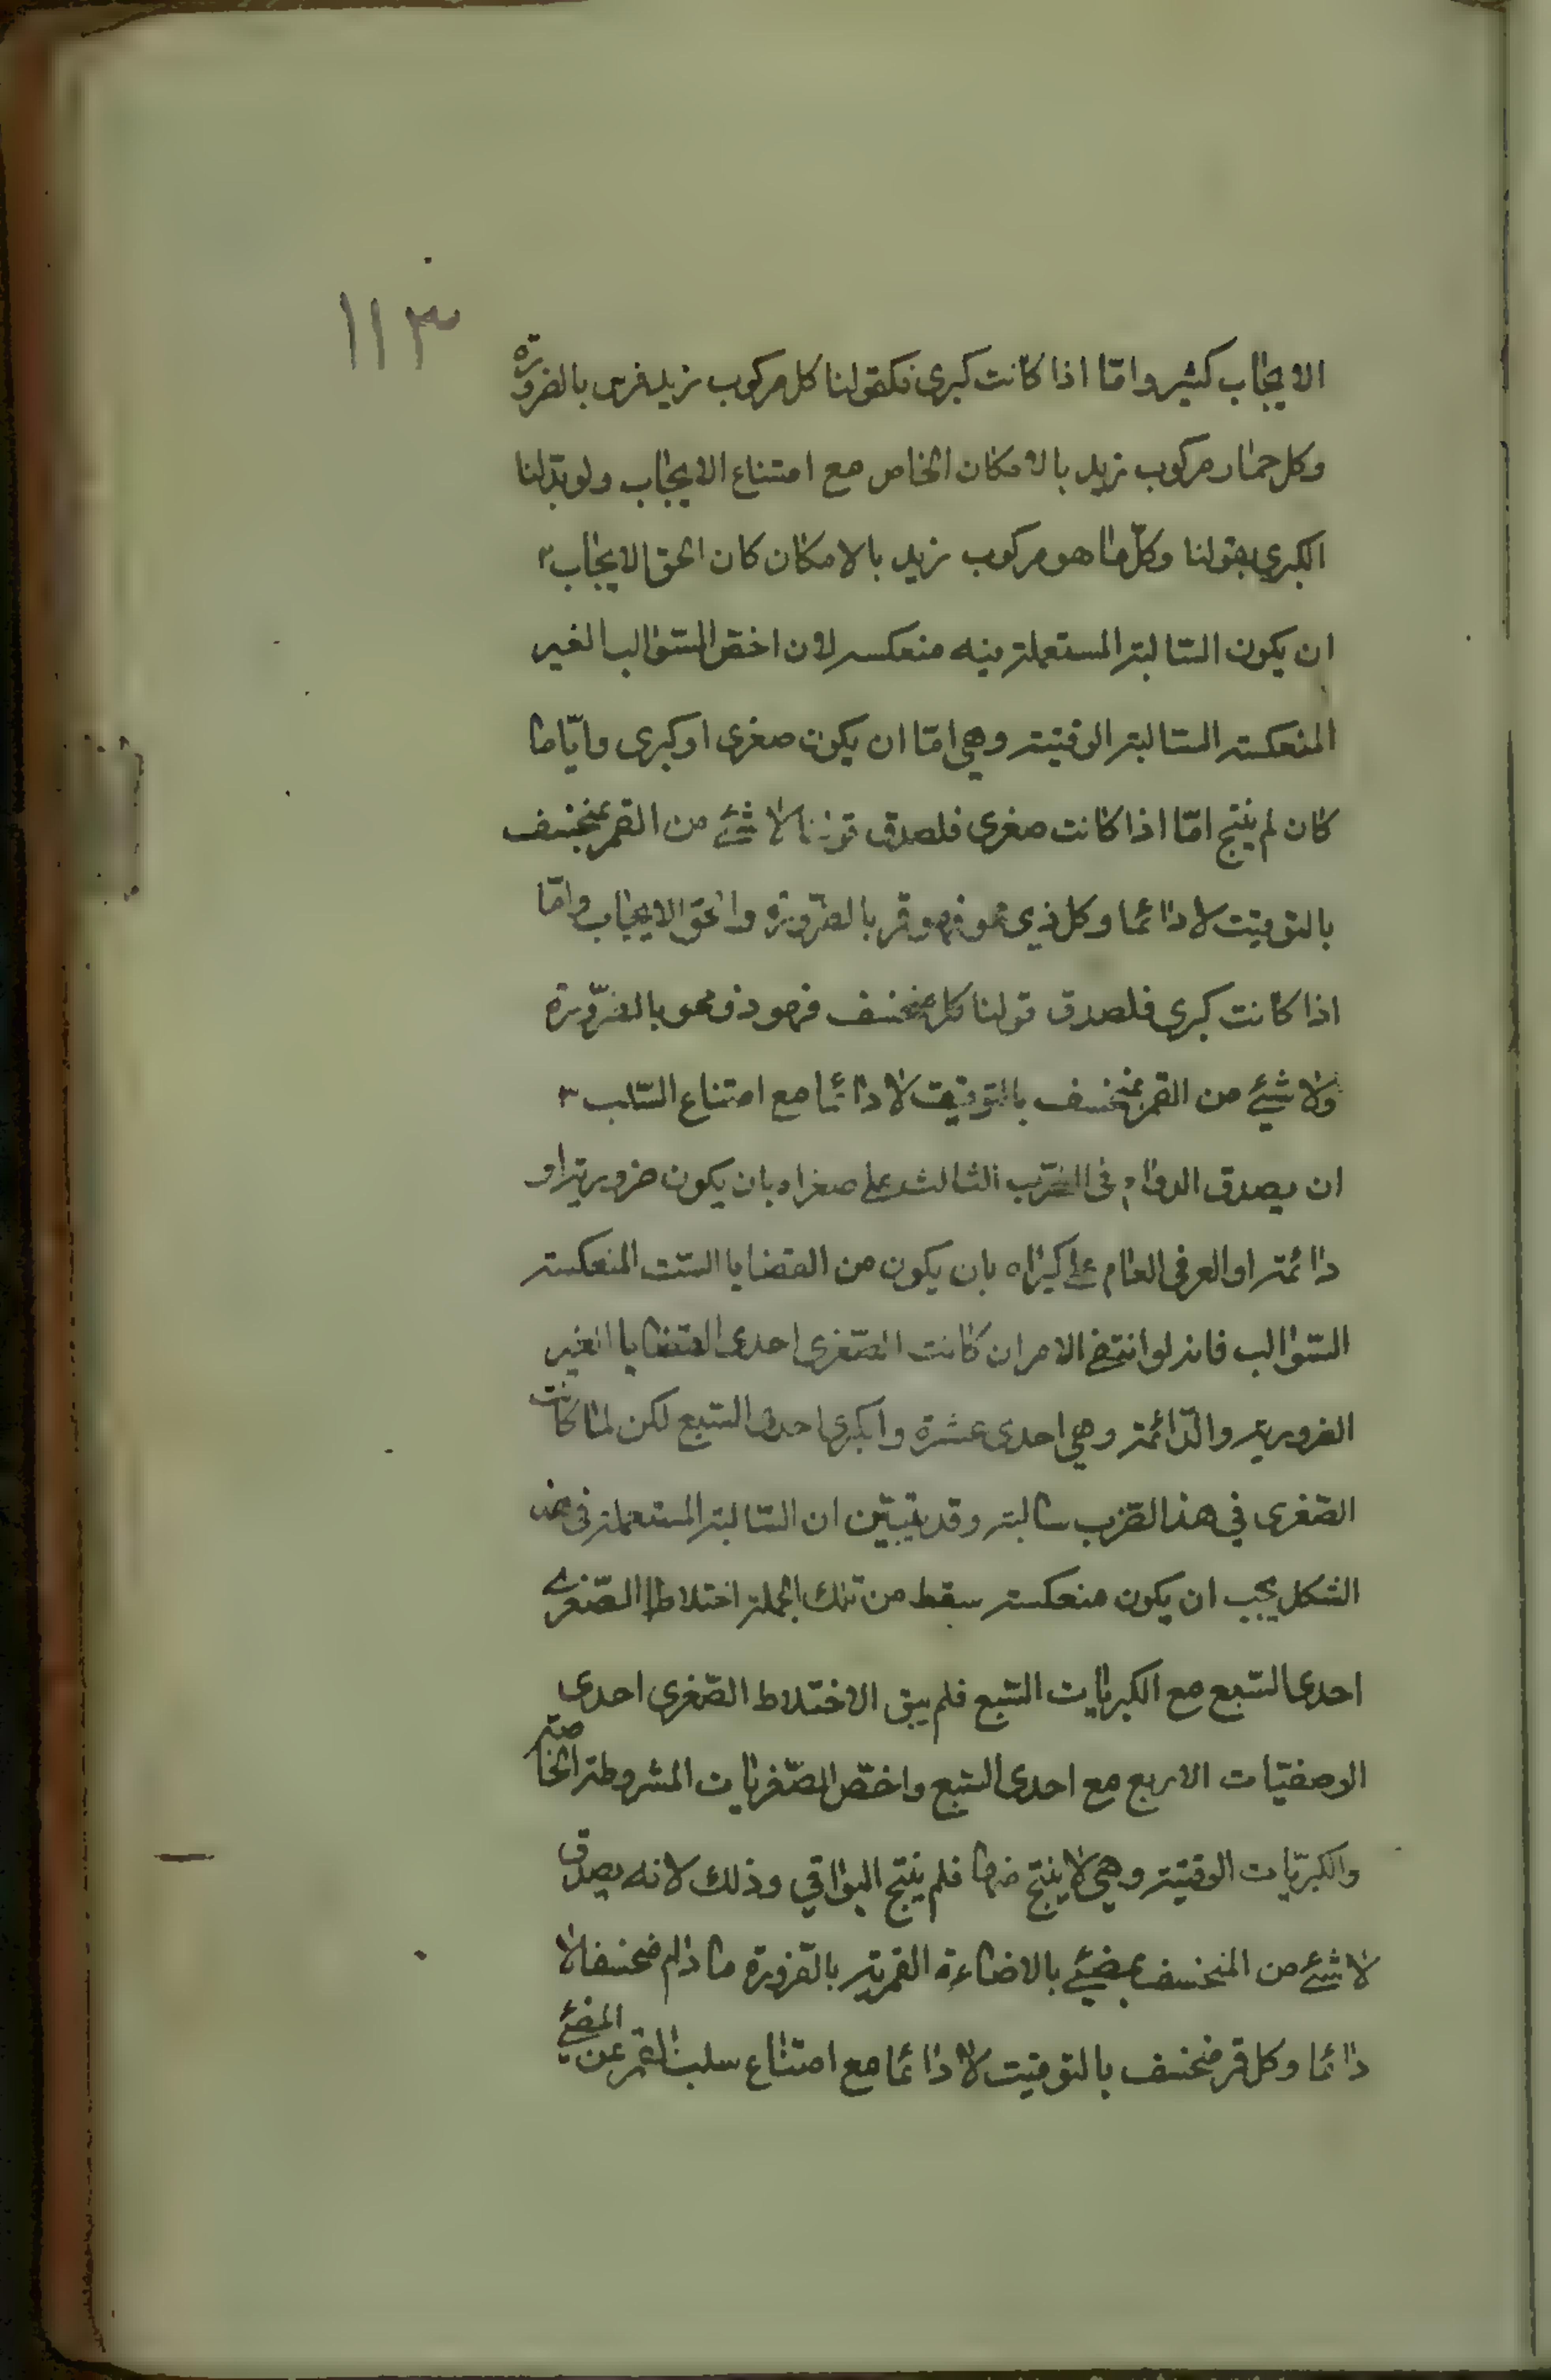 ١١٣
الايجاب كثير وامّا اذا كانت كبرى فكقولنا كل مركوب زيد فرس بالضرورة
وكل حمار مركوب زيد بالامكان الخاص مع امتناع الايجاب ولو بدّلنا
الكبرى بقولنا وكلّ ما هو مركوب زيد بالامكان كان الحق الايجاب ٢
ان يكون السّالبة المستعملة فيه منعكسه لان اخصّ السّوالب الغير
المنعكسة السّالبة الوقتية وهي امّا ان يكون صغرى او كبرى وايّاما
كان لم ينتج امّا اذا كانت صغرى فلصدق قولنا لا شئ من القمر بمنخسف
بالتوقيت لا دائما وكل ذي محو فهو قمر بالضّرورة والحق الايجاب وامّا
اذا كانت كبرى فلصدق قولنا كل منخسف فهو ذو محو بالضّرورة
ولا شئ من القمر بمنخسف بالتوقيت لا دائما مع امتناع السّلب ٣
ان يصدق الدوام في الضّرب الثالث على صغراه بان يكون ضرورية او
دائمة او العرفي العام على كبراه بان يكون من القضايا السّت المنعكسة
السّوالب فانه لو انتفى الامران كانت الصّغرى احدى القضايا الغير
الضرورية والدّائمة وهي احدى عشرة والكبرى احدى السّبع لكن لما كانت
الصّغرى في هذا الضّرب سالبة وقد تبيّن ان السّالبة المستعملة في هذا
الشكل يجب ان يكون منعكسة سقط من تلك الجملة اختلاط الصّغرى
احدى السّبع مع الكبريات السّبع فلم يبق الا ختلاط الصّغرى احدى
الوصفيّات الاربع مع احدى السّبع واخصّ الصّغريات المشروطة الخاصة
والكبريّات الوقتية وهي لا ينتج منها فلم ينتج البواقي وذلك لانه يصدق
لا شئ من المنخسف بمضيئ بالاضاءة القمرية بالضّرورة ما دام منخسفا لا
دائما وكل قمر منخسف بالتوقيت لا دائما مع امتناع سلب القمر عن المضيئ